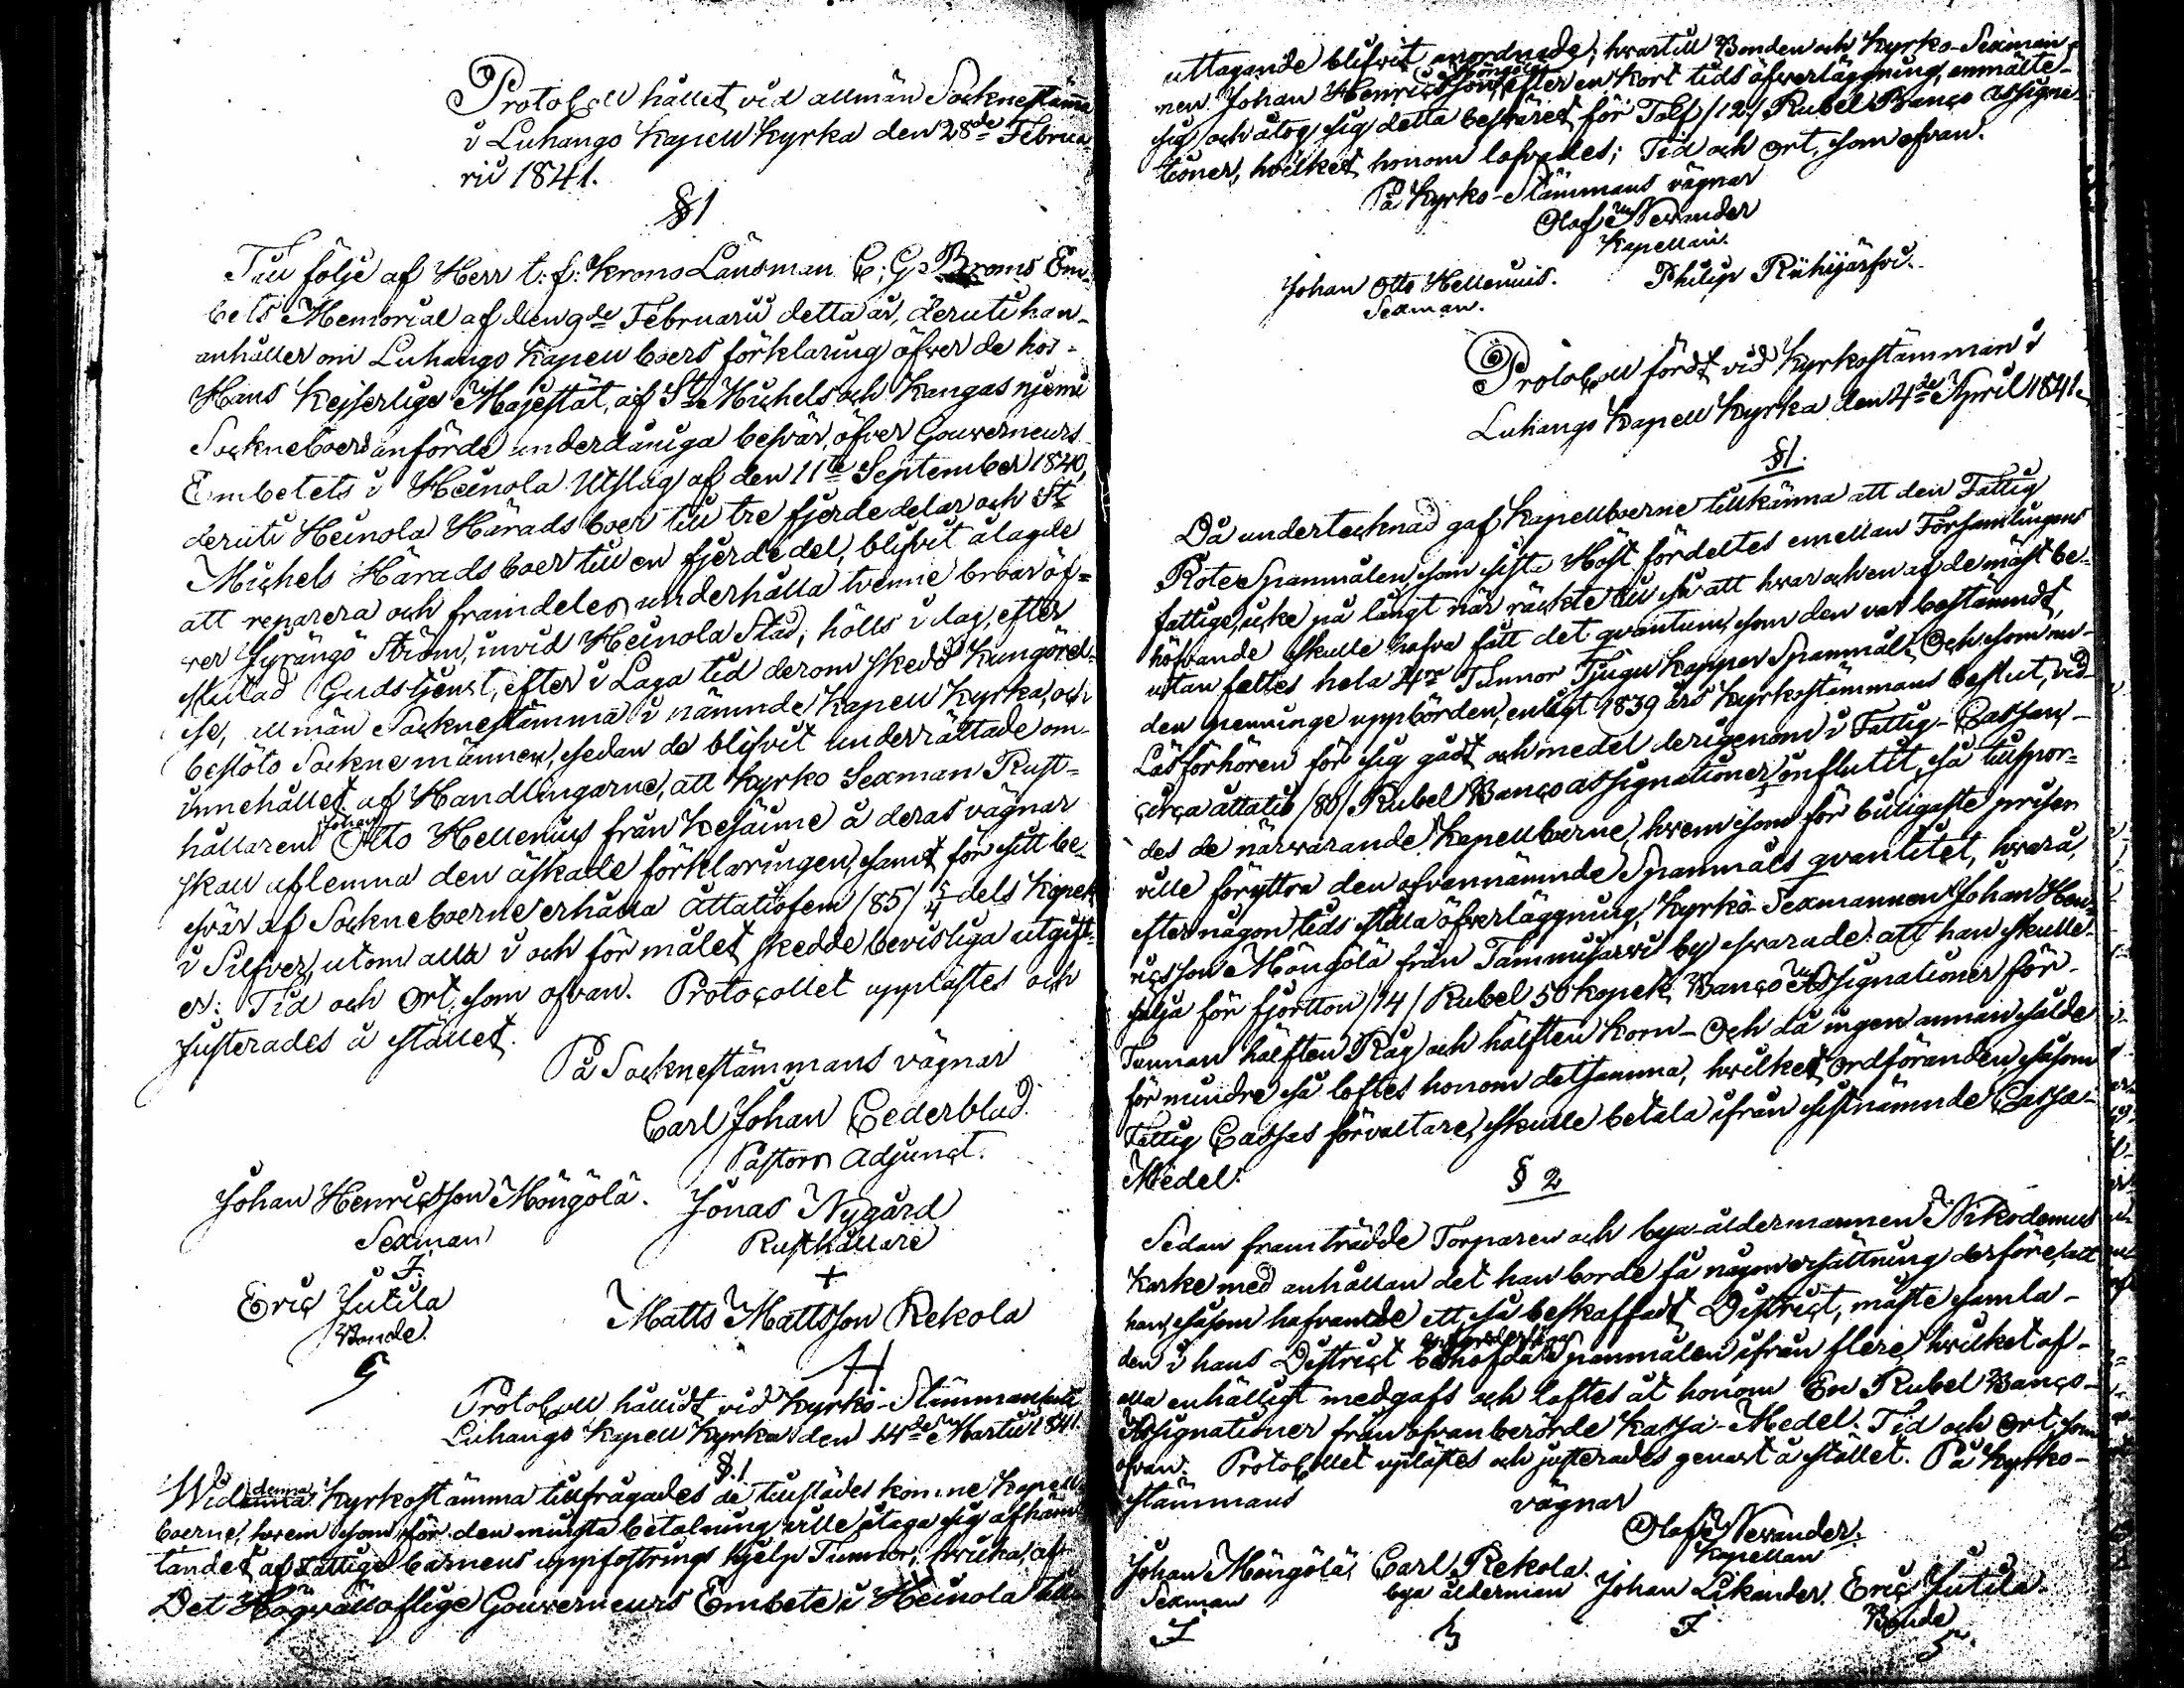 Protocoll hållet vid allmän Socknestämma
i Luhango Kapell Kyrka den 28de Februa-
rii 1841.
§ 1
Till följe af Herr t: f: Krono Länsman C: G: Broms Em-
bets Memorial af den 9de Februarii detta år, deruti han
anhåller om Luhango Kapell boers förklaring öfver de hos
Hans Kejserlige Majestät, af St Michels och Kangasnjemi
Sockneboer anförde underdåniga besvär, öfver Gouverneurs
Embetets i Heinola Utslag af den 11te September 1840,
deruti Heinola Härads boer till tre fjerdedelar och St
Michels Härads boer till en fjerdedel, blifvit ålagde
att reparera och framdeles underhålla tvenne broar öf-
ver Jyrängö Ström, invid Heinola Stad; hölls i dag, efter
slutad Gudstjenst, efter i Laga tid derom skedd Kungörel-
se, allmän Socknestämma i nämnde Kapell Kyrka, och
beslöto Sockne männen, sedan de blifvit underrättade om
innehållet af Handlingarne, att Kyrko Sexman Rust-
hållaren Johan Otto Hellenius från Kesäune å deras vägnar
skall aflemna den äskade förklaringen, samt för sitt be-
svär af Sockneboerne erhålla Åttatiofem /85/ 5/4 dels Kopek
i Silfver, utom alla i och för målet skedde bevisliga utgift-
er: Tid och Ort, som ofvan. Protocollet upplästes och
justerades å stället.
På Socknestämmans vägnar
Carl Johan Cederblad.
Pastors Adjunct.
Johan Henricsson Möngölä. Jonas Nygård
Sexman Rusthållare
Eric Jutila Matts Mattsson Rekola
Bonde.
Protocoll hållidt vid Kyrko-Stämman uti
Luhango Kapell Kyrka den 14de Martii 1841.
§. 1
Wid denna Kyrkostämma tillfrågades de tillstädes komne Kapell
boerne, hvem som för den minsta betalning ville åtaga sig afhäm-
tandet af Fattige barnens uppfostrings hjelp Tunnor, hvilka, af
Det Högvällofliga Gouverneurs Embete i Heinola till
uttagande blifvit anordnade; hvartill Bonden och Kyrko-Sexman-
nen Johan Henricsson Möngölä, efter en kort tids öfverläggning, anmälte
sig och åtog sig detta besväret för Tolf /12/ Rubel Banco Assigna-
tioner, hvilket honom lofvades; Tid och Ort, som ofvan.
På Kyrko-Stämmans vägnar
Olof Nevander
Kapellan.
Johan Otto Hellenius. Philip Riihijärfvi.
Sexman.
Protocoll fördt vid Kyrkostämman i
Luhango Kapell Kyrka den 4de April 1841.
§1.
Då undertecknad gaf Kapellboerne tillkänna att den Fattig
Rote Spannmålen, som sista Höst fördeltes emellan Församlingens
fattige, icke på långt när räckte till så att hvar och en af de mäst be-
höfvande skulle hafva fått det qvantum, som den var bestämndt,
utan fattes hela 4ra Tunnor Tjugu Kappor Spannmål; Och som nu
den penninge uppbörden, enligt 1839 års Kyrkostämmans beslut, vid
Läsförhören för sig gådt och medel derigenom i Fattig-Cassan,
circa åttatio /80/ Rubel Banco assignationer, influtit, så tillspor-
des de närvarande Kapellboerne, hvem som för billigaste prisen
ville föryttra den ofvannämnde Spannmåls qvantitet, hvarå,
efter någon tids stilla öfverläggning, Kyrko-Sexmannen Johan Hen-
ricsson Möngölä från Tammijärvi by svarade: att han skulle
sälja för fjortton /14/ Rubel 50 kopek Banco Assignationer för
Tunnan hälften Råg och hälften Korn - Och då ingen annan sålde
för mindre så loftes honom detsamma, hvilket Ordföranden, såsom
Fattig Cassas förvaltare, skulle betala ifrån sistnämnde Cassa-
Medel.
§ 2
Sedan framträdde Torparen och bya-åldermannen Nikodemus
Karke med anhållan det han borde få någon ersättning derföre, att
han, såsom hafvande ett så beskaffadt District, måste samla
den i hans District behöfda Spannmålen ifrån flere, hvilket af
alla enhälligt medgafs och loftes åt honom En Rubel Banco
Assignationer från ofvanberörde Kassa-Medel. Tid och Ort som
ofvan. Protocollet uplästes och justerades genast å stället. På Kyrko-
stämmans vägnar
Olof Nevander.
Kapellan
Johan Möngölä, Carl Rekola. Johan Likander. Eric Jutila
Sexman bya ålderman Bonde